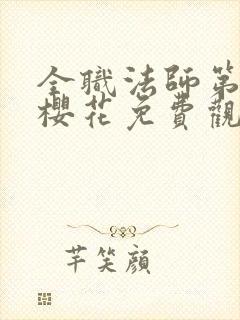 全職法師第
櫻花免費觀
芊笑顔